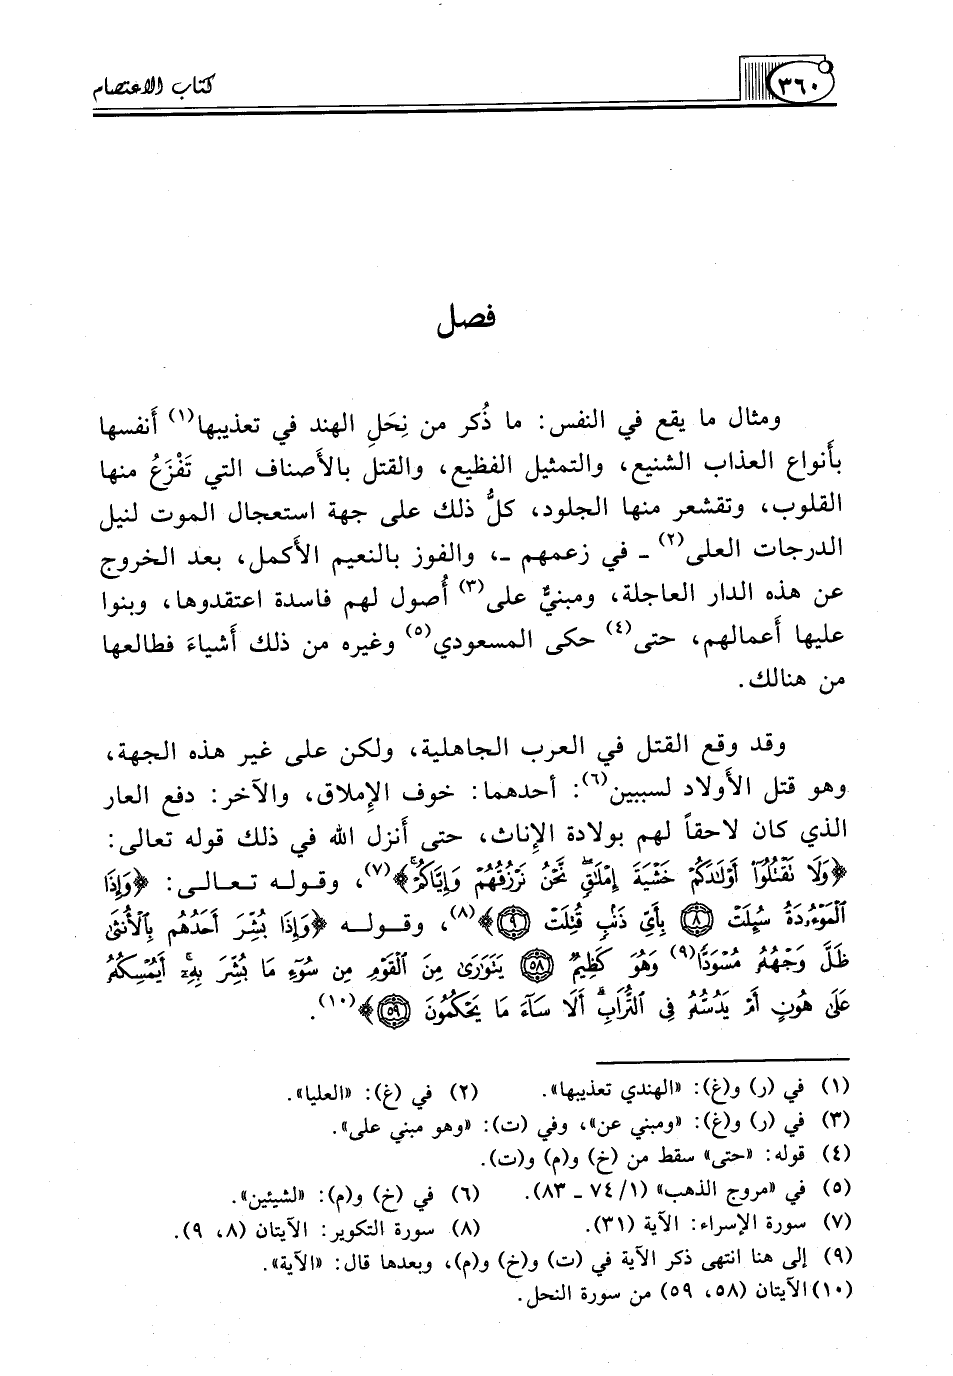 ٣٦٠ كتاب الاعتصام
فصل
ومثال ما يقع في النفس: ما ذُكر من نِحَلِ الهند في تعذيبها(١) أنفسها
بأنواع العذاب الشنيع، والتمثيل الفظيع، والقتل بالأصناف التي تَفْزَعُ منها
القلوب، وتقشعر منها الجلود، كلُّ ذلك على جهة استعجال الموت لنيل
الدرجات العلى(٢) ـ في زعمهم ـ، والفوز بالنعيم الأكمل، بعد الخروج
عن هذه الدار العاجلة، ومبنيٌّ على(٣) أُصول لهم فاسدة اعتقدوها، وبنوا
عليها أعمالهم، حتى(٤) حكى المسعودي(٥) وغيره من ذلك أشياءَ فطالعها
من هنالك.
وقد وقع القتل في العرب الجاهلية، ولكن على غير هذه الجهة،
وهو قتل الأولاد لسببين(٦): أحدهما: خوف الإملاق، والآخر: دفع العار
الذي كان لاحقاً لهم بولادة الإناث، حتى أنزل الله في ذلك قوله تعالى:
﴿وَلَا نَقْتُلُوٓا۟ أَوْلَٰدَكُمْ خَشْيَةَ إِمْلَٰقٍۢ نَّحْنُ نَرْزُقُهُمْ وَإِيَّاكُمْ ۚ﴾(٧)، وقوله تعالى: ﴿وَإِذَا
ٱلْمَوْءُۥدَةُ سُئِلَتْ ٨ بِأَيِّ ذَنۢبٍ قُتِلَتْ ٩﴾(٨)، وقوله ﴿وَإِذَا بُشِّرَ أَحَدُهُم بِٱلْأُنثَىٰ
ظَلَّ وَجْهُهُۥ مُسْوَدًّا(٩) وَهُوَ كَظِيمٌ ٥٨ يَتَوَٰرَىٰ مِنَ ٱلْقَوْمِ مِن سُوٓءِ مَا بُشِّرَ بِهِۦٓ ۚ أَيُمْسِكُهُۥ
عَلَىٰ هُونٍ أَمْ يَدُسُّهُۥ فِى ٱلتُّرَابِ ۗ أَلَا سَآءَ مَا يَحْكُمُونَ ٥٩﴾(١٠).
(١) في (ر) و(غ): «الهندي تعذيبها». (٢) في (غ): «العليا».
(٣) في (ر) و(غ): «ومبني عن»، وفي (ت): «وهو مبني على».
(٤) قوله: «حتى» سقط من (خ) و(م) و(ت).
(٥) في «مروج الذهب» (١/ ٧٤ ـ ٨٣). (٦) في (خ) و(م): «لشيئين».
(٧) سورة الإسراء: الآية (٣١). (٨) سورة التكوير: الآيتان (٨، ٩).
(٩) إلى هنا انتهى ذكر الآية في (ت) و(خ) و(م)، وبعدها قال: «الآية».
(١٠) الآيتان (٥٨، ٥٩) من سورة النحل.